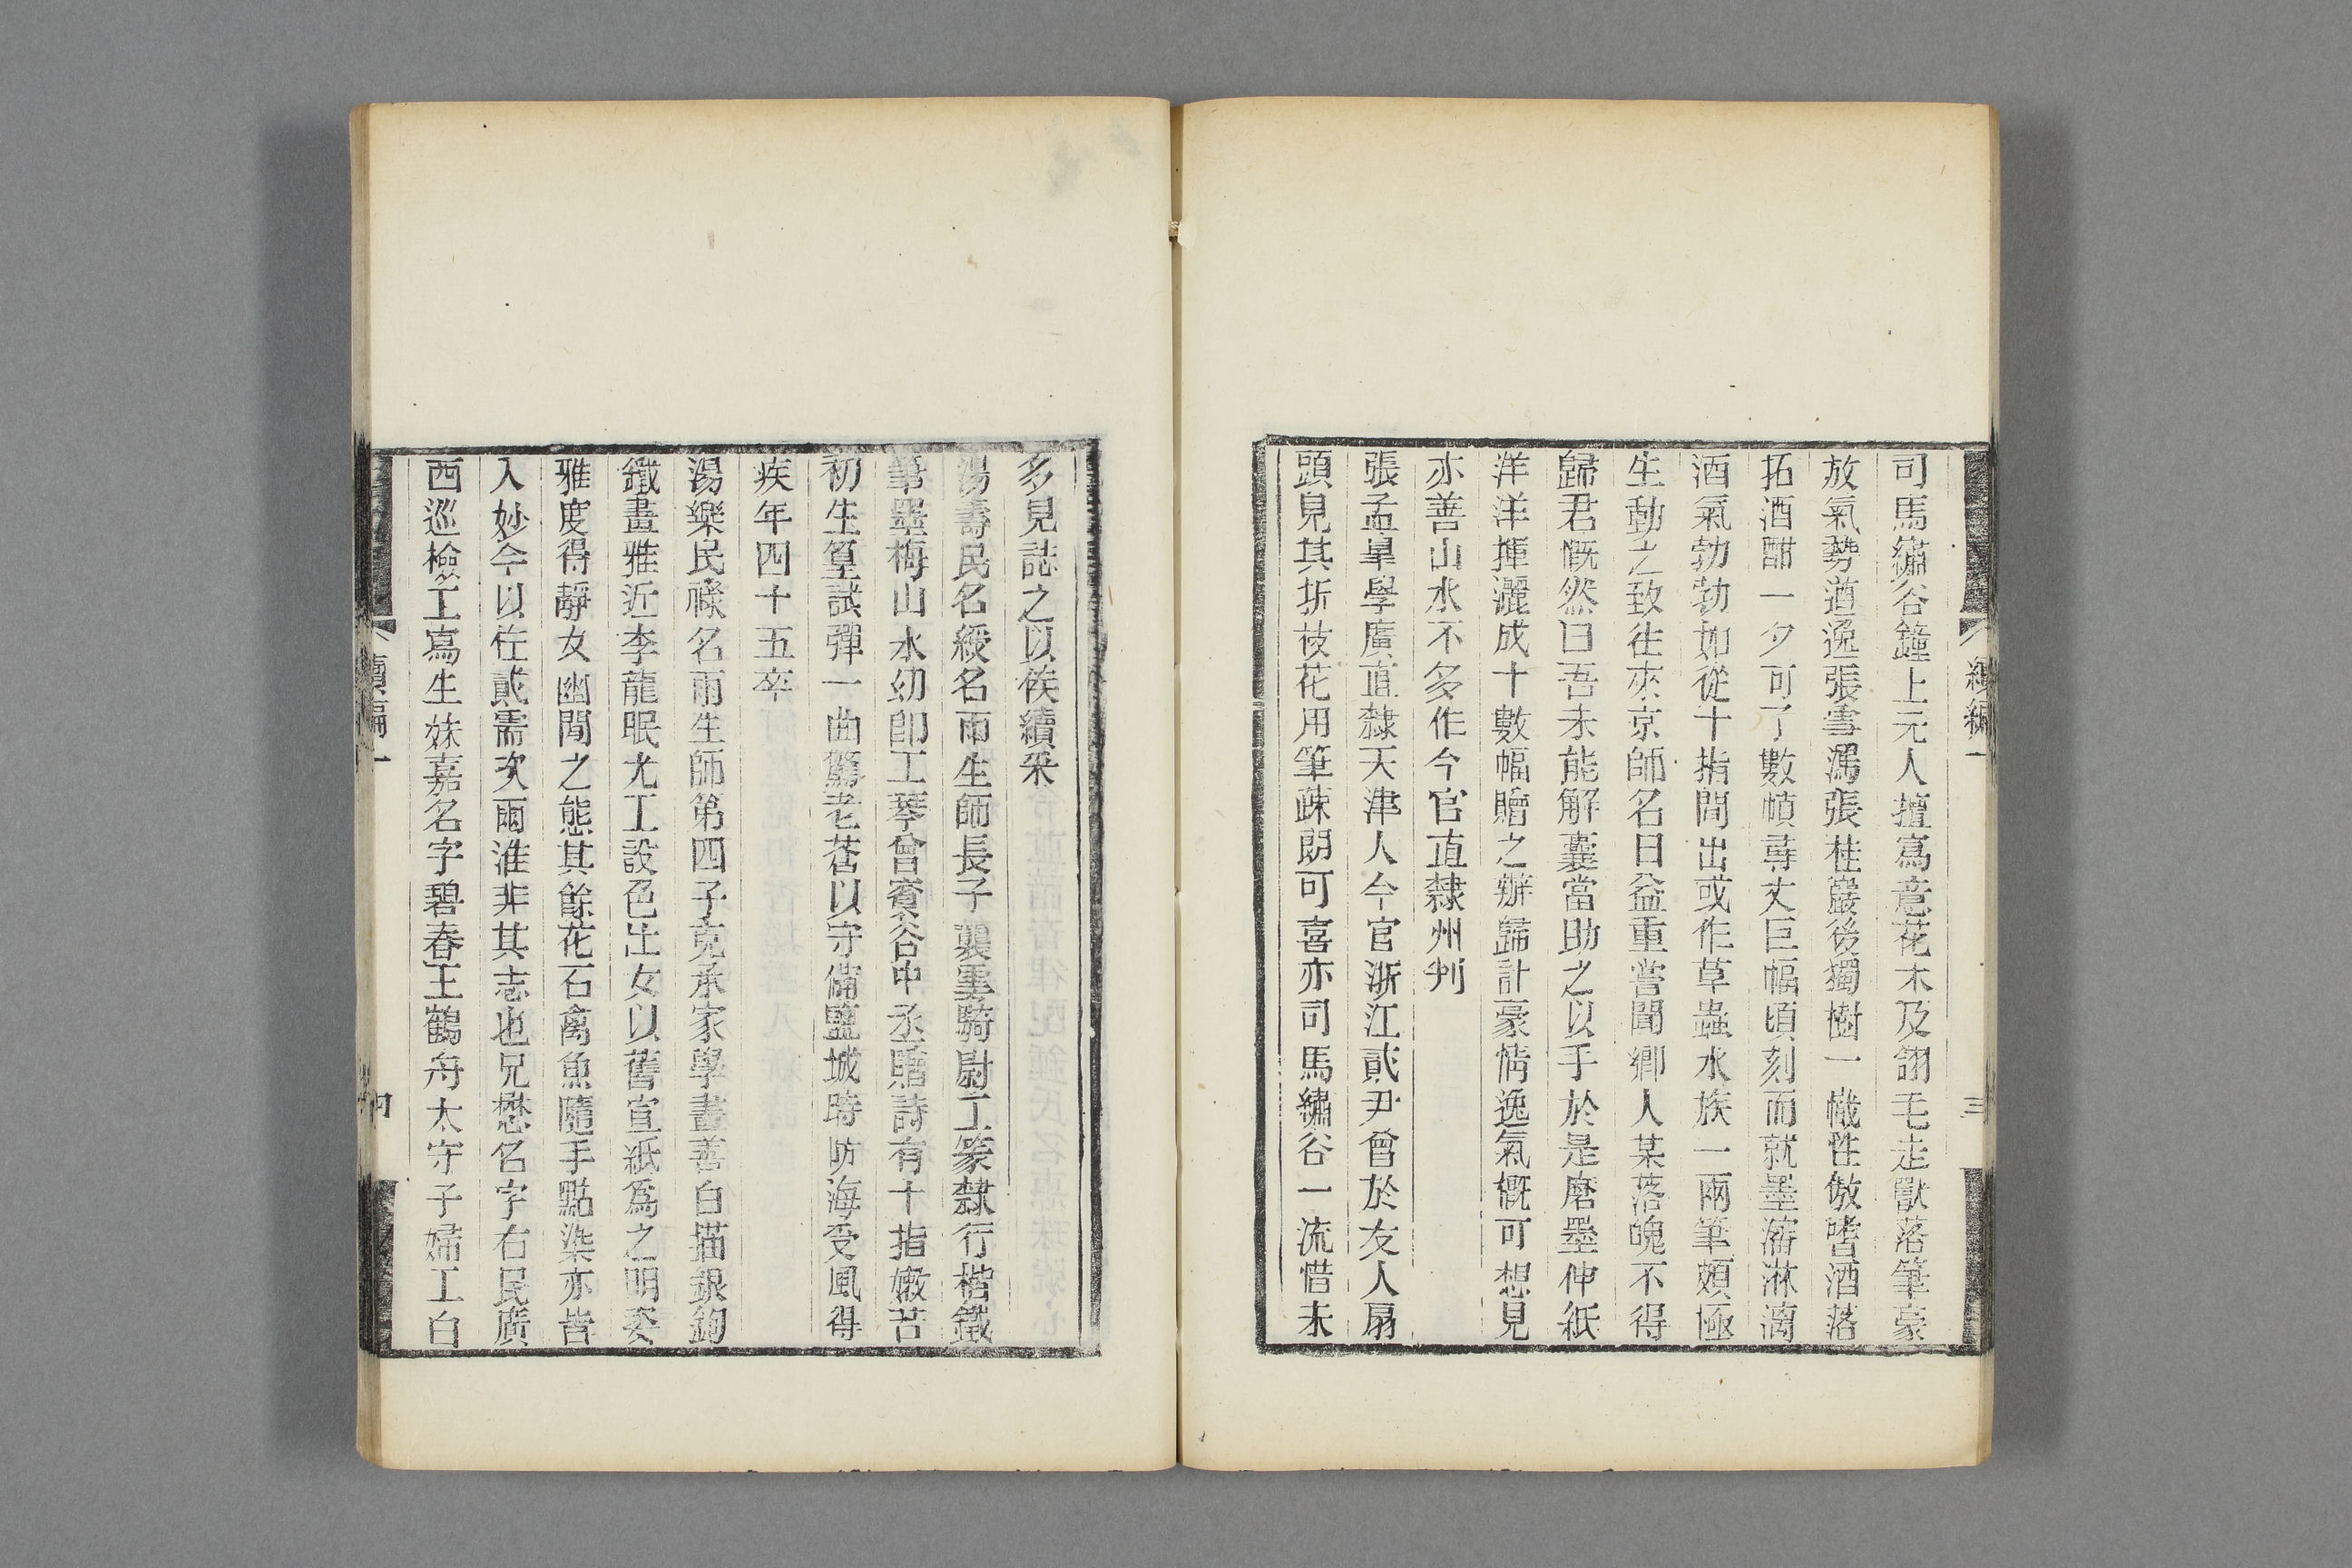 續編一
三
司馬繡谷鐘上元人擅寫意花木及翎毛走獸落筆豪
放氣勢遒逸張雪鴻張桂巖後獨樹一幟性傲嗜酒落
拓酒酣一夕可了數幀尋丈巨幅頃刻而就墨瀋淋漓
酒氣勃勃如從十指間出或作草蟲水族一兩筆頗極
生動之致往來京師名日益重嘗聞鄉人某落魄不得
歸君慨然曰吾未能解囊當助之以手於是磨墨伸紙
洋洋揮灑成十數幅贈之辦歸計豪情逸氣概可想見
亦善山水不多作今官直隸州判
張孟皐學廣直隸天津人今官浙江貳尹曾於友人扇
頭見其折枝花用筆疎朗可喜亦司馬繡谷一流惜未
多見誌之以俟續采
湯壽民名綬名雨生師長子襲雲騎尉工篆隸行楷鐵
筆墨梅山水幼卽工琴曾賓谷中丞贈詩有十指嫩苔
初生篁試彈一曲驚老蒼以守備鹽城時防海受風得
疾年四十五卒
湯樂民祿名雨生師第四子克承家學畫善白描銀鉤
鐵畫雅近李龍眠尤工設色仕女以舊宣紙爲之明姿
雅度得靜女幽閒之態其餘花石禽魚隨手點染亦皆
入妙今以佐貳需次兩淮非其志也兄懋名字右民廣
西巡檢工寫生妹嘉名字碧春王鶴舟太守子婦工白
續編一
四